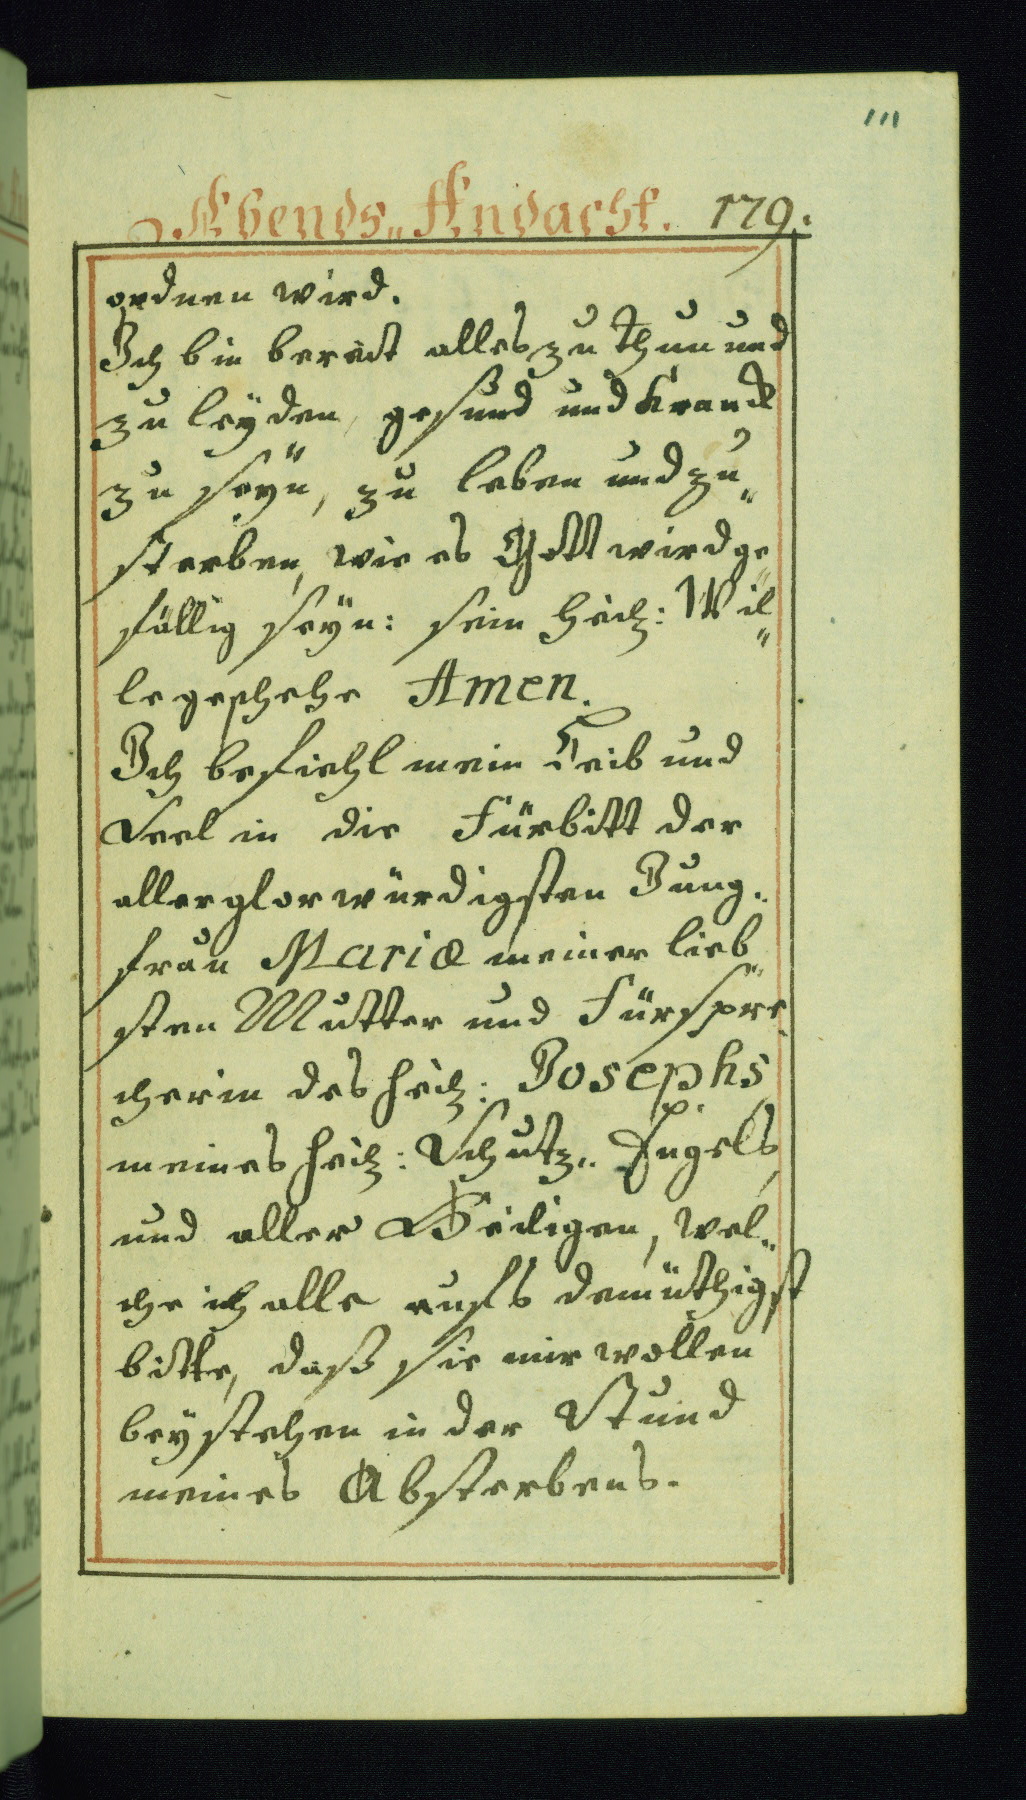 111
Abends„Andacht. 179.
ordnen wird.
Ich bin bereit alles zu thun und
zu leÿden, gesund und kranck
zu seÿn, zu leben und zu„
sterben, wie es Gott wird ge„
fällig seÿn: sein heilg: Wil„
le geschehe Amen.
Ich befiehl mein Leib und
Seel in die Fürbitt der
allerglorwürdigsten Jung„
frau Mariæ meiner lieb„
sten Mutter und Fürspre„
cherin des heilg: Josephs,
meines heilg: Schutz„Engels,
und aller Heiligen, wel„
che ich alle aufs demüthigst
bitte, daß sie mir wollen
beÿstehen in der Stund
meines Absterbens.